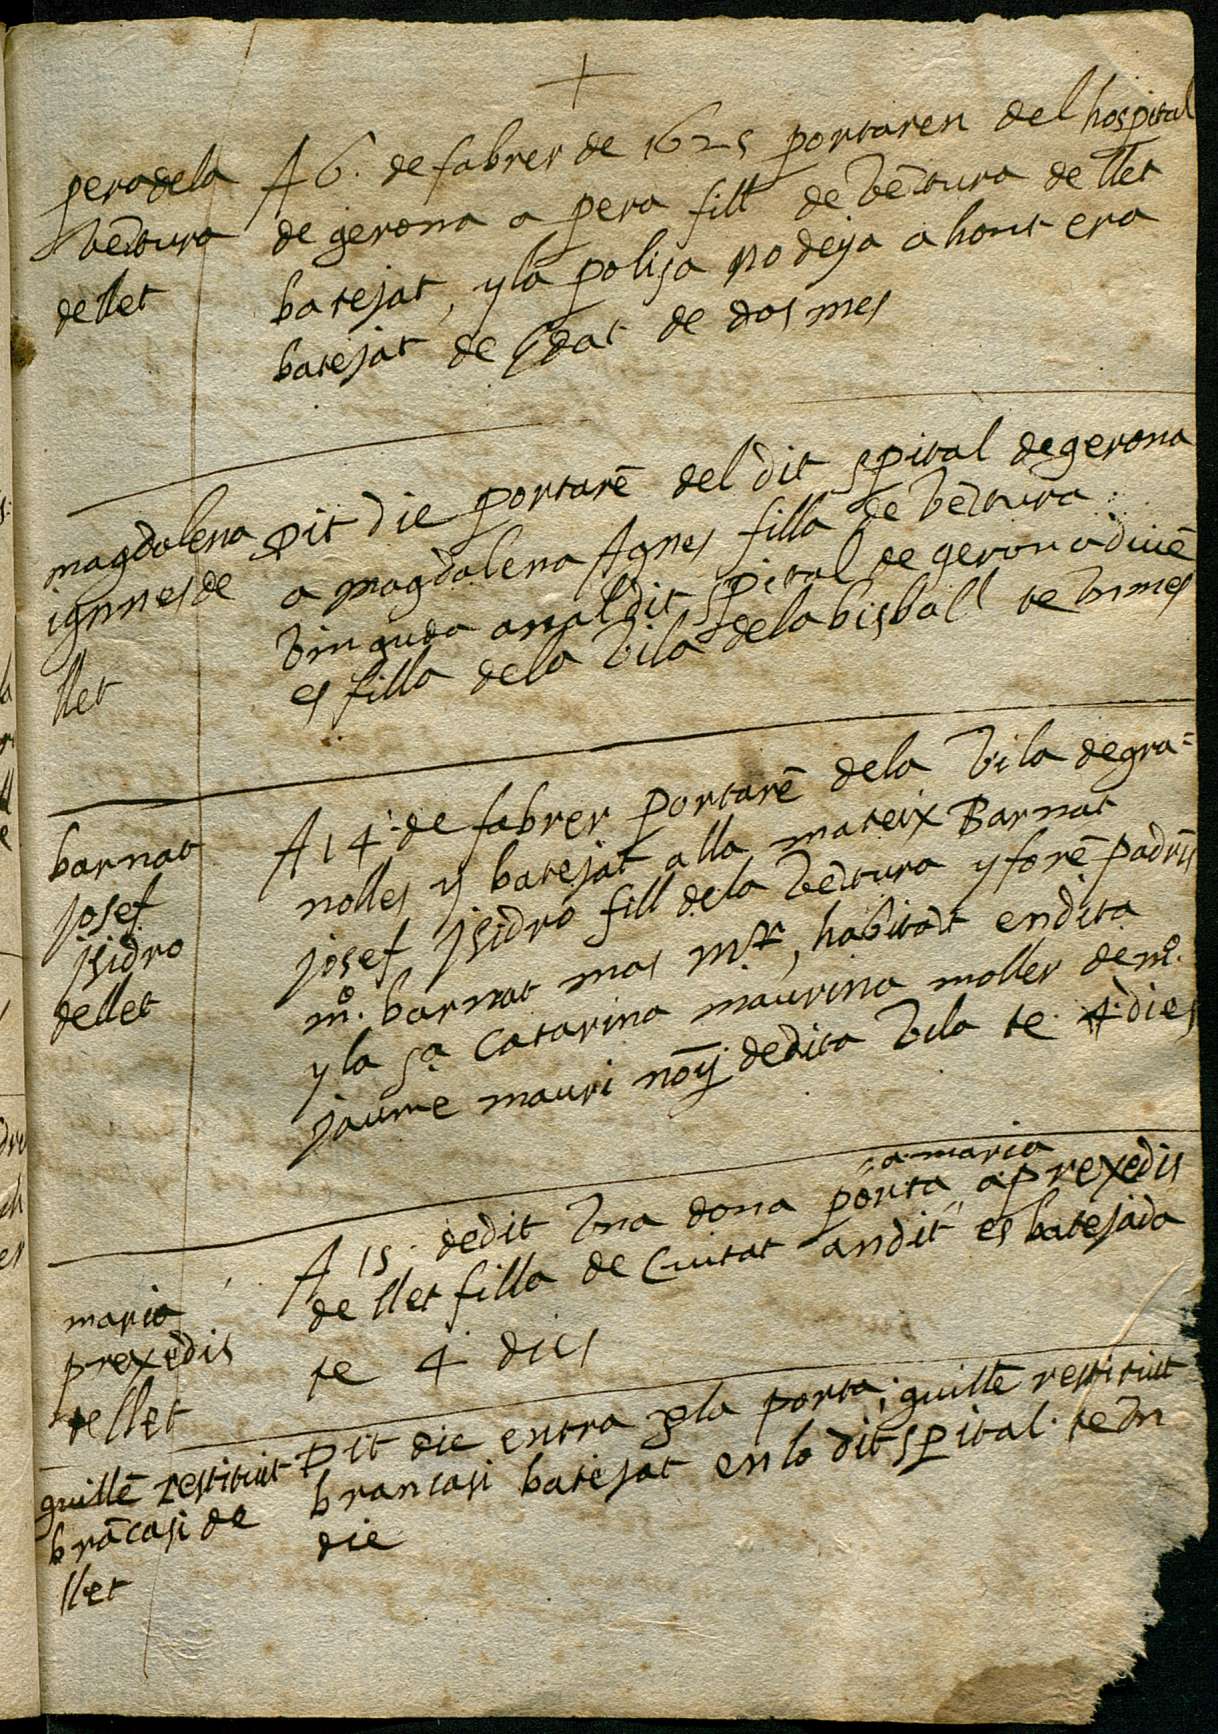 +
pera dela
vẽtura
de llet
A 6. de fabrer de 1625 portaren del hospital
de gerona a pera fill de vẽtura de llet
batejat, y la polisa no deya ahont era
batejat de edat de dos mes
magdalena
ignnes de
llet
Dit die portarẽ del dit spital de gerona
a magdalena Agnes filla de vẽtura
vinguda an al dit spital de gerona diuẽ
es filla dela vila dela bisball te vn mes
barnat
josef
jsidro
de llet
A 14. de fabrer portarẽ dela vila de gra=
nolles y batejat alla mateix Barnat
josef jsidro fill dela vẽtura y forẽ padrĩs
mº. barnat mas mᵗ, habitãt en dita
y la sª catarina maurina moller de mº.
jaume mauri noȳ de dita vila te 4. dies
maria
prexedis
de llet
A 15. de dit vna dona porta a maria prexedis
de llet filla de Ciutat an dit es batejada
te 4 dies
guillẽ restitiut
brãcasi de
llet
Dit die entra per la porta; guillẽ restitiut
brancasi batejat en lo dit spital. te vn
die